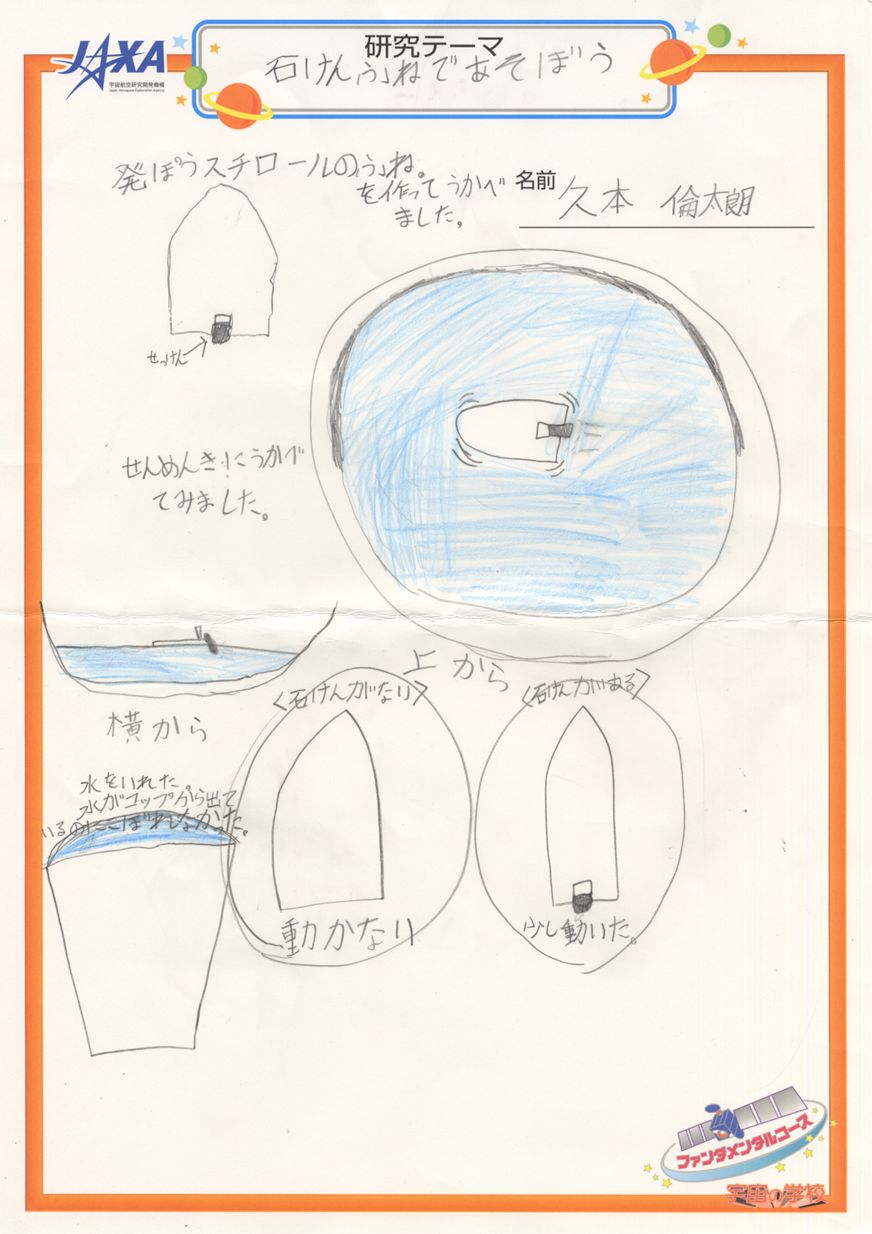 JAXA
宇宙航空研究開発機構
Japan Aerospace Exploration Agency
研究テーマ
石けんふねであそぼう
発ぽうスチロールのふね。
を作ってうかべ
ました。
名前 久本 倫太朗
せっけん→
せんめんきにうかべ
てみました。
上から
横から
〈石けんがない〉
〈石けんがある〉
水をいれた。
水がコップから出て
いるのにこぼれなかった。
動かない
少し動いた。
ファンダメンタルコース
宇宙の学校